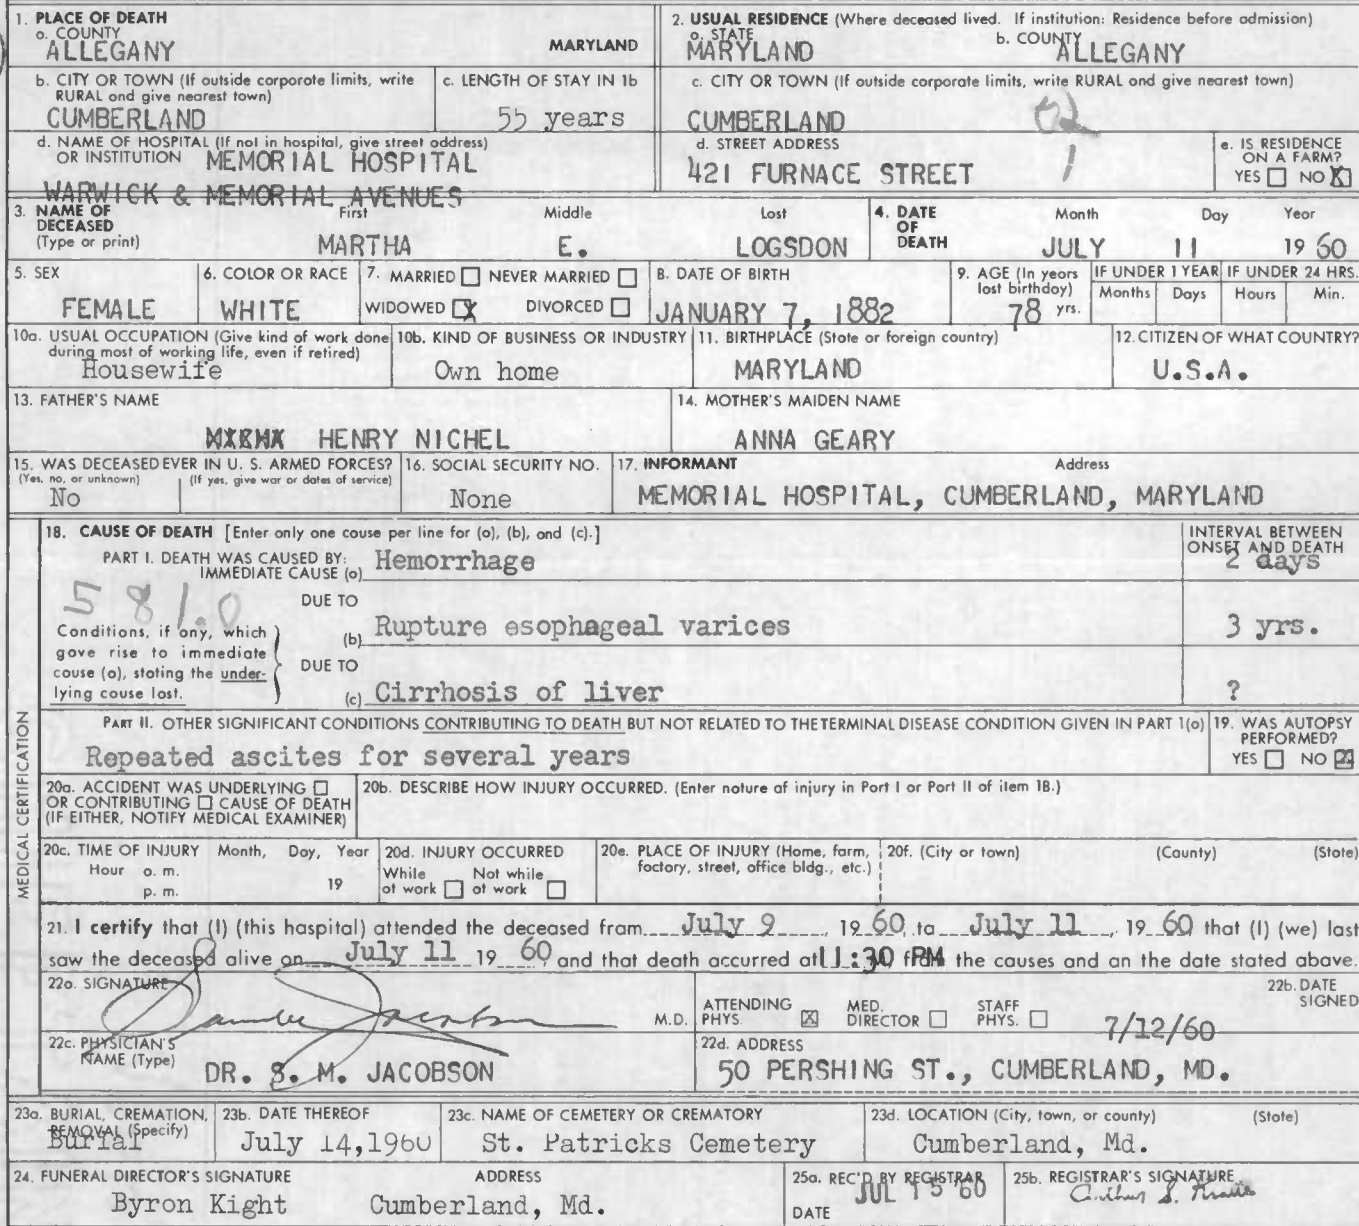 1. PLACE OF DEATH
a. COUNTY
ALLEGANY MARYLAND
2. USUAL RESIDENCE (Where deceased lived. If institution: Residence before admission)
a. STATE b. COUNTY
MARYLAND ALLEGANY
b. CITY OR TOWN (If outside corporate limits, write
RURAL and give nearest town)
CUMBERLAND
c. LENGTH OF STAY IN 1b
55 years
c. CITY OR TOWN (If outside corporate limits, write RURAL and give nearest town)
CUMBERLAND
d. NAME OF HOSPITAL (If not in hospital, give street address)
OR INSTITUTION MEMORIAL HOSPITAL
WARWICK & MEMORIAL AVENUES
d. STREET ADDRESS
421 FURNACE STREET
e. IS RESIDENCE
ON A FARM?
YES NO X
3. NAME OF
DECEASED
(Type or print)
First Middle Last
MARTHA E. LOGSDON
4. DATE
OF
DEATH
Month Day Year
JULY 11 19 60
5. SEX
FEMALE
6. COLOR OR RACE
WHITE
7. MARRIED NEVER MARRIED
WIDOWED X DIVORCED
8. DATE OF BIRTH
JANUARY 7, 1882
9. AGE (In years
last birthday)
78 yrs.
IF UNDER 1 YEAR
Months Days
IF UNDER 24 HRS.
Hours Min.
10a. USUAL OCCUPATION (Give kind of work done
during most of working life, even if retired)
Housewife
10b. KIND OF BUSINESS OR INDUSTRY
Own home
11. BIRTHPLACE (State or foreign country)
MARYLAND
12. CITIZEN OF WHAT COUNTRY?
U.S.A.
13. FATHER'S NAME
HENRY NICHEL
14. MOTHER'S MAIDEN NAME
ANNA GEARY
15. WAS DECEASED EVER IN U. S. ARMED FORCES?
(Yes, no, or unknown) (If yes, give war or dates of service)
No
16. SOCIAL SECURITY NO.
None
17. INFORMANT Address
MEMORIAL HOSPITAL, CUMBERLAND, MARYLAND
MEDICAL CERTIFICATION
18. CAUSE OF DEATH [Enter only one cause per line for (a), (b), and (c).]
INTERVAL BETWEEN
ONSET AND DEATH
PART I. DEATH WAS CAUSED BY:
IMMEDIATE CAUSE (a) Hemorrhage 2 days
581.0
DUE TO
(b) Rupture esophageal varices 3 yrs.
Conditions, if any, which
gave rise to immediate
cause (a), stating the under-
lying cause last.
DUE TO
(c) Cirrhosis of liver ?
PART II. OTHER SIGNIFICANT CONDITIONS CONTRIBUTING TO DEATH BUT NOT RELATED TO THE TERMINAL DISEASE CONDITION GIVEN IN PART 1(a)
Repeated ascites for several years
19. WAS AUTOPSY
PERFORMED?
YES NO X
20a. ACCIDENT WAS UNDERLYING
OR CONTRIBUTING CAUSE OF DEATH
(IF EITHER, NOTIFY MEDICAL EXAMINER)
20b. DESCRIBE HOW INJURY OCCURRED. (Enter nature of injury in Part I or Part II of item 18.)
20c. TIME OF INJURY Month, Day, Year
Hour a. m.
p. m. 19
20d. INJURY OCCURRED
While Not while
at work at work
20e. PLACE OF INJURY (Home, farm,
factory, street, office bldg., etc.)
20f. (City or town) (County) (State)
21. I certify that (I) (this hospital) attended the deceased from July 9, 19 60, to July 11, 19 60 that (I) (we) last
saw the deceased alive on July 11 19 60, and that death occurred at 11:30 PM from the causes and on the date stated above.
22a. SIGNATURE
M.D.
ATTENDING
PHYS. X
MED.
DIRECTOR
STAFF
PHYS.
22b. DATE
SIGNED
7/12/60
22c. PHYSICIAN'S
NAME (Type)
DR. S. M. JACOBSON
22d. ADDRESS
50 PERSHING ST., CUMBERLAND, MD.
23a. BURIAL, CREMATION,
REMOVAL (Specify)
Burial
23b. DATE THEREOF
July 14, 1960
23c. NAME OF CEMETERY OR CREMATORY
St. Patricks Cemetery
23d. LOCATION (City, town, or county) (State)
Cumberland, Md.
24. FUNERAL DIRECTOR'S SIGNATURE ADDRESS
Byron Kight Cumberland, Md.
25a. REC'D BY REGISTRAR
JUL 15 '60
DATE
25b. REGISTRAR'S SIGNATURE
Arthur S. Kraus